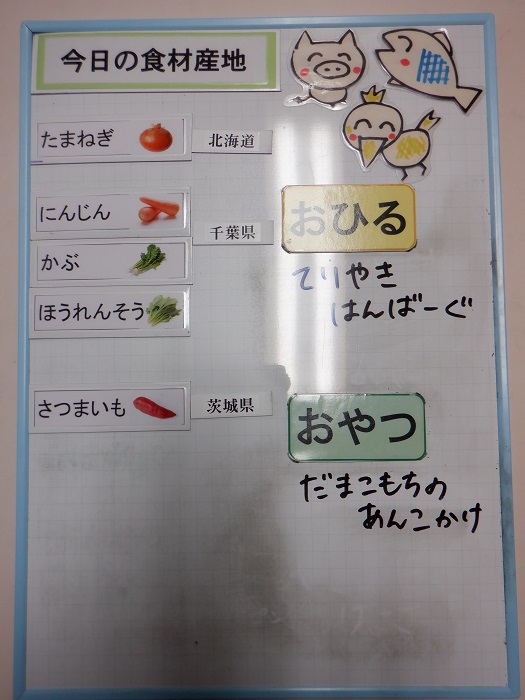 今日の食材産地
たまねぎ 北海道
にんじん 千葉県
かぶ
ほうれんそう
さつまいも 茨城県
おひる
てりやき
はんばーぐ
おやつ
だまこもちの
あんこかけ